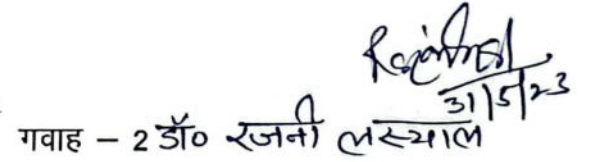 31/5/23
गवाह – 2 डॉ० रजनी लस्याल